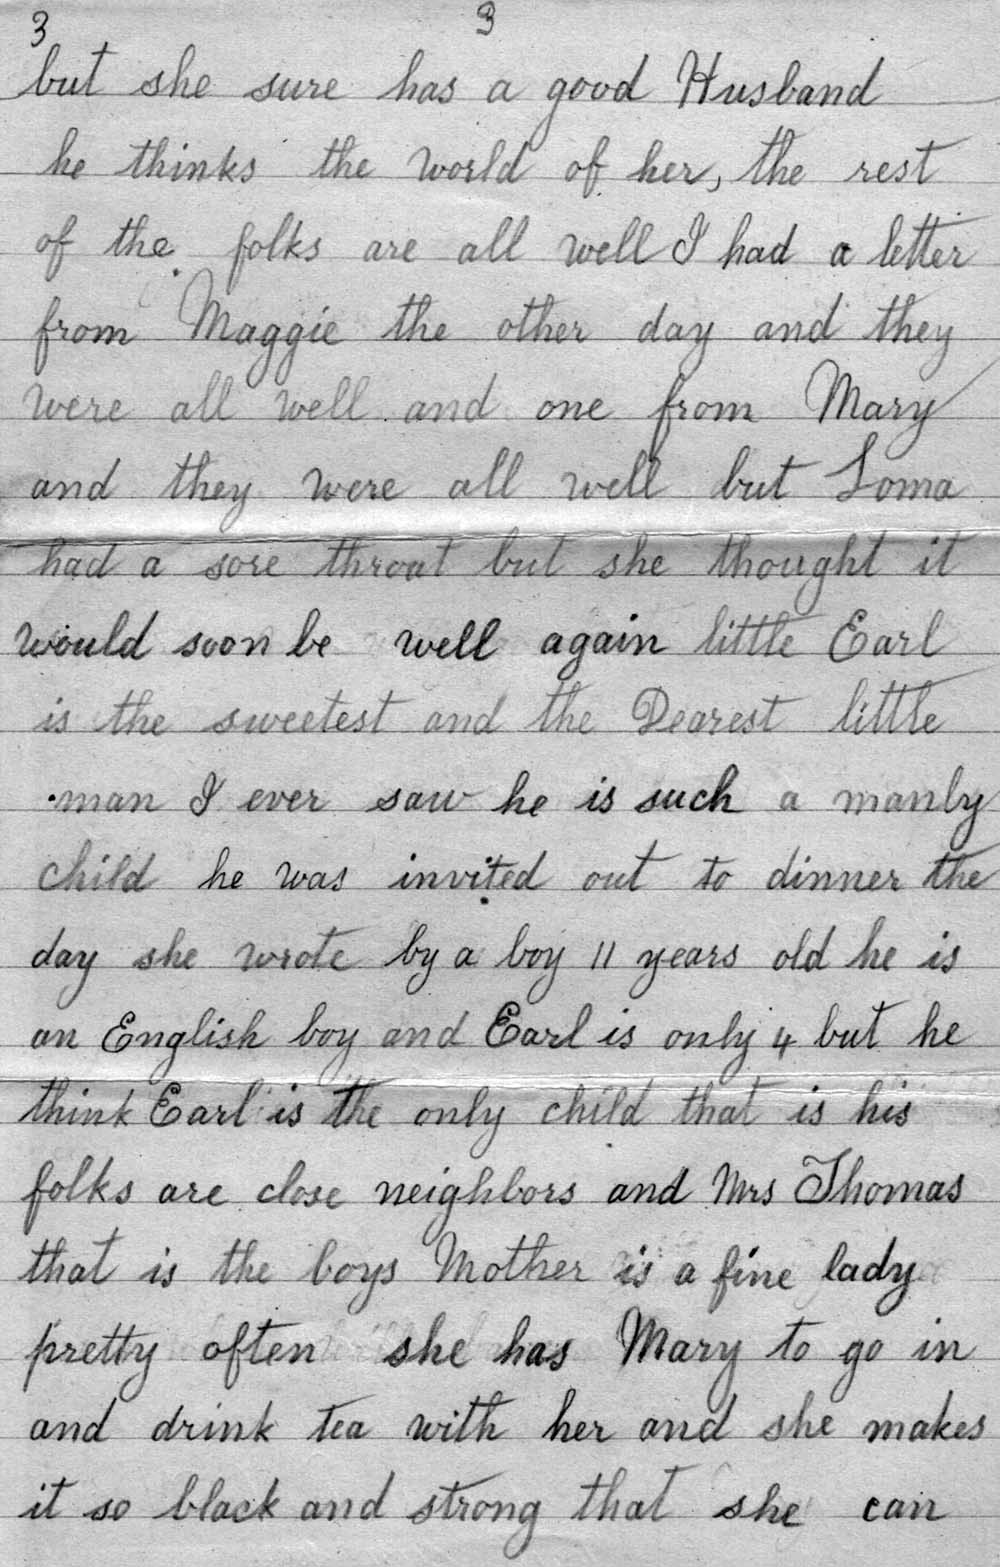 3 3
but she sure has a good Husband
he thinks the world of her, the rest
of the folks are all well I had a letter
from Maggie the other day and they
were all well and one from Mary
and they were all well but Loma
had a sore throat but she thought it
would soon be well again little Earl
is the sweetest and the Dearest little
man I ever saw he is such a manly
child he was invited out to dinner the
day she wrote by a boy 11 years old he is
an English boy and Earl is only 4 but he
think Earl is the only child that is his
folks are close neighbors and Mrs Thomas
that is the boys Mother is a fine lady
pretty often she has Mary to go in
and drink tea with her and she makes
it so black and strong that she can